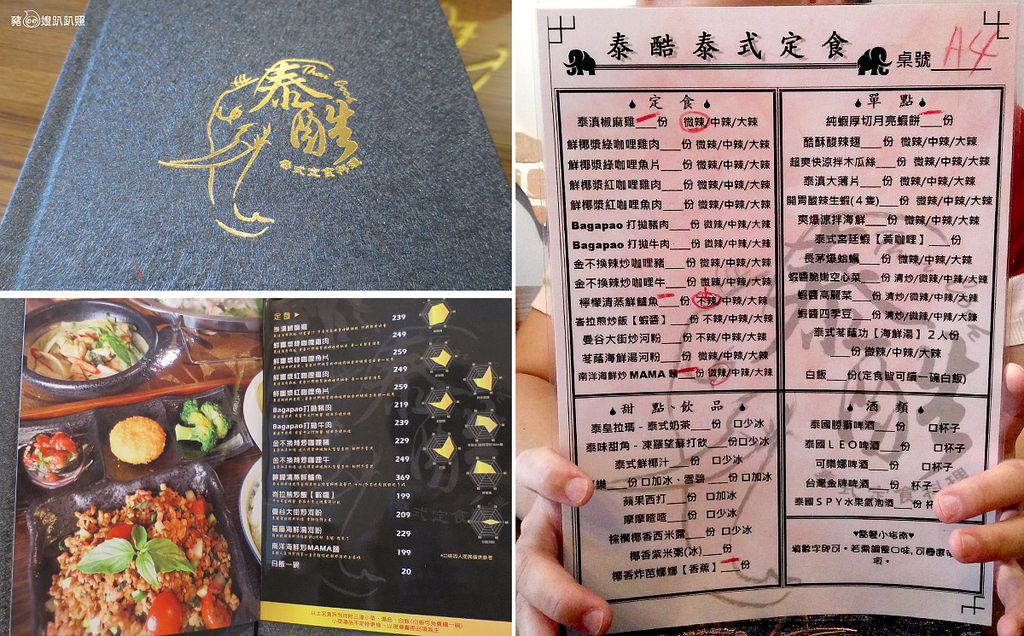 豬 嫂趴趴照
Thai Cool
泰酷
泰式定食料理
定食
泰滇椒麻雞 239
鮮椰漿綠咖哩雞肉 249
鮮椰漿綠咖哩魚片 259
鮮椰漿紅咖哩雞肉 249
鮮椰漿紅咖哩魚片 259
Bagapao打拋豬肉 219
Bagapao打拋牛肉 239
金不換辣炒咖哩豬 229
金不換辣炒咖哩牛 249
檸檬清蒸鮮鱸魚 369
峇拉煎炒飯【蝦醬】 199
曼谷大街炒河粉 209
菇蔭海鮮湯河粉 229
南洋海鮮炒MAMA麵 199
白飯一碗 20
泰酷泰式定食
桌號 A4
定食
泰滇椒麻雞___份 微辣/中辣/大辣
鮮椰漿綠咖哩雞肉___份 微辣/中辣/大辣
鮮椰漿綠咖哩魚片___份 微辣/中辣/大辣
鮮椰漿紅咖哩雞肉___份 微辣/中辣/大辣
鮮椰漿紅咖哩魚肉___份 微辣/中辣/大辣
Bagapao 打拋豬肉___份 微辣/中辣/大辣
Bagapao 打拋牛肉___份 微辣/中辣/大辣
金不換辣炒咖哩豬___份 微辣/中辣/大辣
金不換辣炒咖哩牛___份 微辣/中辣/大辣
檸檬清蒸鮮鱸魚___份 不辣/中辣/大辣
峇拉煎炒飯【蝦醬】___份 不辣/中辣/大辣
曼谷大街炒河粉___份 不辣/中辣/大辣
菇蔭海鮮湯河粉___份 微辣/中辣/大辣
南洋海鮮炒 MAMA 麵___份 微辣/中辣/大辣
單點
純蝦厚切月亮蝦餅___份
酷酥酸辣翅___份 微辣/中辣/大辣
超爽快涼拌木瓜絲___份 微辣/中辣/大辣
泰滇大薄片___份 微辣/中辣/大辣
開胃酸辣生蝦(4隻)___份 微辣/中辣/大辣
爽爆涼拌海鮮___份 微辣/中辣/大辣
泰式宮廷蝦【黃咖哩】___份
長茅爆蛤蠣___份 微辣/中辣/大辣
蝦醬脆嫩空心菜___份 清炒/微辣/中辣/大辣
蝦醬高麗菜___份 清炒/微辣/中辣/大辣
蝦醬四季豆___份 清炒/微辣/中辣/大辣
泰式菇蔭功【海鮮湯】2人份
___份 微辣/中辣/大辣
白飯___份(定食皆可續一碗白飯)
甜點、飲品
泰皇拉瑪-泰式奶茶___份 口少冰
泰味甜角-凍羅望蘇打飲___份口少冰
泰式鮮椰汁___份 口少冰
可樂___份 口加冰、雪碧___份 口加冰
蘋果西打___份 口加冰
摩摩喳喳___份 口少冰
棕櫚椰香西米露___份 口少冰
椰香紫米粥(冰)___份
椰香炸芭娜娜【香蕉】___份
酒類
泰國勝獅啤酒___份 口杯子
泰國LEO啤酒___份 口杯子
可樂娜啤酒___份 口杯子
台灣金牌啤酒___份 杯子
泰國SPY水果氣泡酒___份 杯
♥點餐小指南♥
填數字即可，若需調整口味，可圈